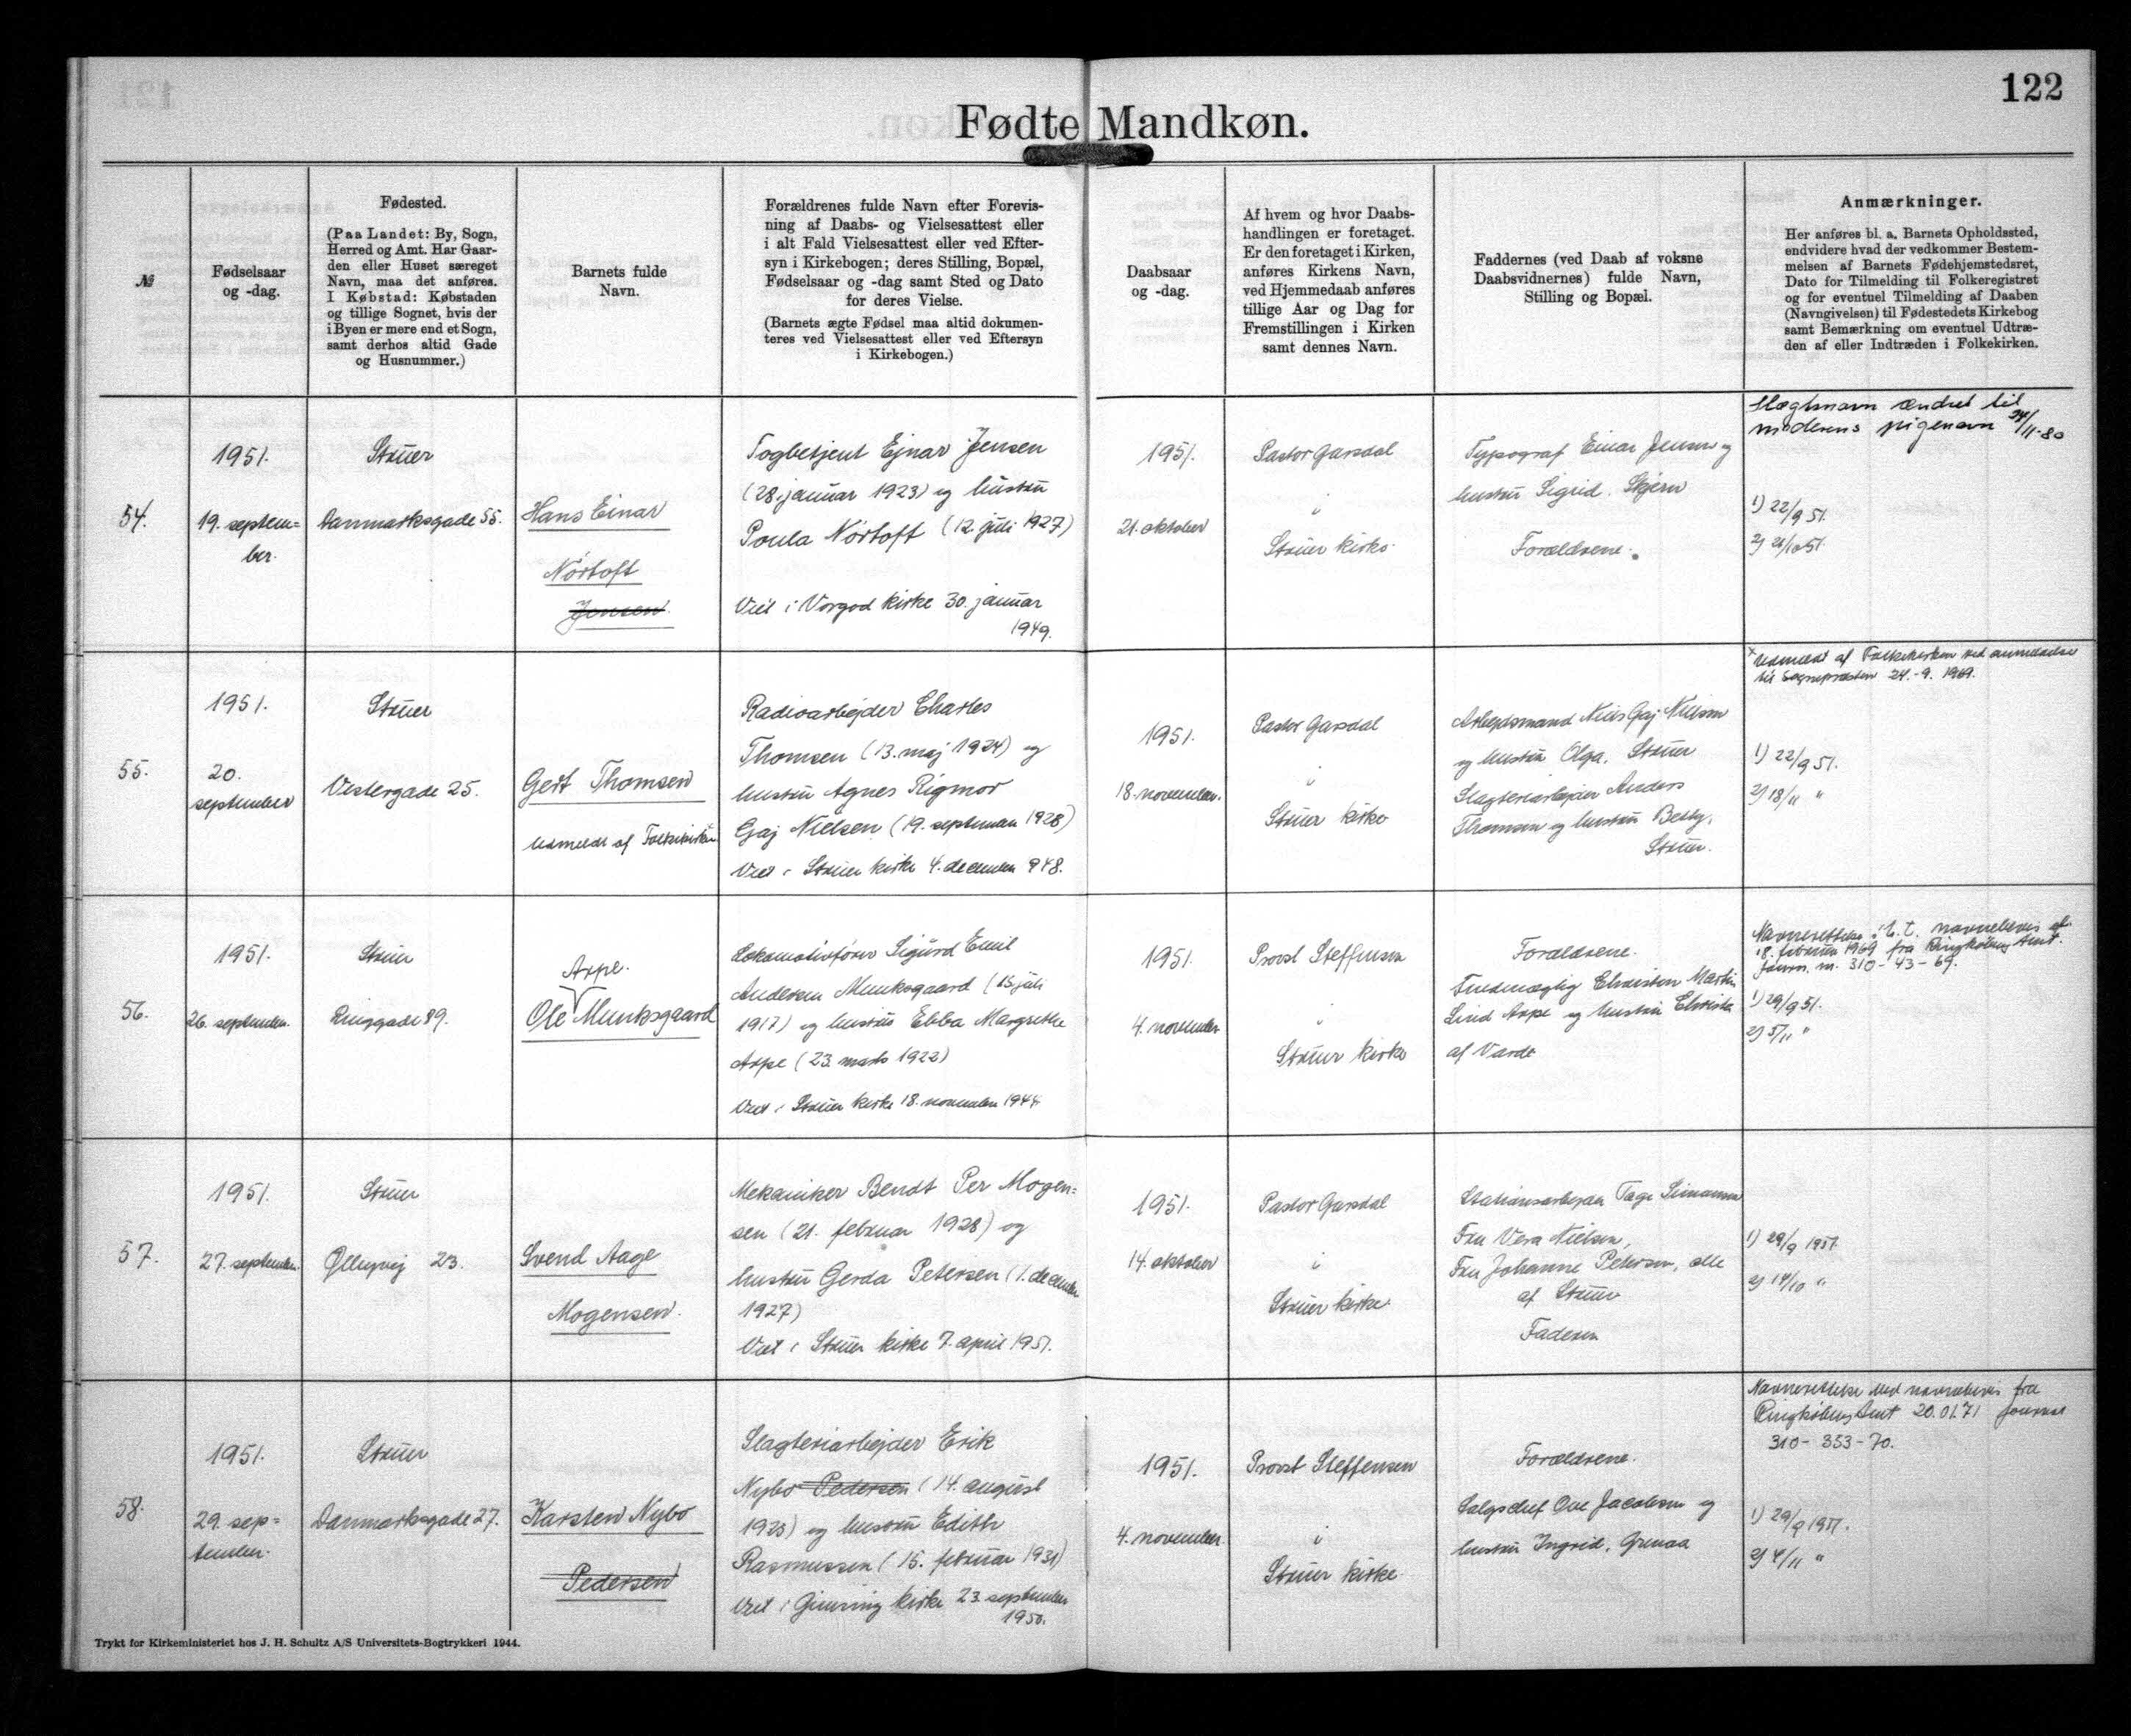 122
Fødte Mandkøn.
№
Fødselsaar
og -dag.
Fødested.
(Paa Landet: By, Sogn,
Herred og Amt. Har Gaar-
den eller Huset særeget
Navn, maa det anføres.
I Købstad: Købstaden
og tillige Sognet, hvis der
i Byen er mere end et Sogn,
samt derhos altid Gade
og Husnummer.)
Barnets fulde
Navn.
Forældrenes fulde Navn efter Forevis-
ning af Daabs- og Vielsesattest eller
i alt Fald Vielsesattest eller ved Efter-
syn i Kirkebogen; deres Stilling, Bopæl,
Fødselsaar og -dag samt Sted og Dato
for deres Vielse.
(Barnets ægte Fødsel maa altid dokumen-
teres ved Vielsesattest eller ved Eftersyn
i Kirkebogen.)
Daabsaar
og -dag.
Af hvem og hvor Daabs-
handlingen er foretaget.
Er den foretaget i Kirken,
anføres Kirkens Navn,
ved Hjemmedaab anføres
tillige Aar og Dag for
Fremstillingen i Kirken
samt dennes Navn.
Faddernes (ved Daab af voksne
Daabsvidnernes) fulde Navn,
Stilling og Bopæl.
Anmærkninger.
Her anføres bl. a. Barnets Opholdssted,
endvidere hvad der vedkommer Bestem-
melsen af Barnets Fødehjemstedsret,
Dato for Tilmelding til Folkeregistret
og for eventuel Tilmelding af Daaben
(Navngivelsen) til Fødestedets Kirkebog
samt Bemærkning om eventuel Udtræ-
den af eller Indtræden i Folkekirken.
54.
1951.
19. septem=
ber.
Struer
Danmarksgade 55.
Hans Einar
Nörtoft
Jensen.
Togbetjent Ejnar Jensen
(28. januar 1923) og hustru
Poula Nörtoft (12. juli 1927)
Viet i Vorgod kirke 30. januar
1949.
1951.
21. oktober
Pastor Garsdal
i
Struer kirke.
Typograf Einar Jensen og
hustru Sigrid. Skjern
Forældrene.
Slægtsnavn ændret til
moderens pigenavn 24/11-80
1) 22/9 51.
2) 21/10 51.
55.
1951.
20.
september
Struer
Vestergade 25.
Gert Thomsen
Udmeldt af Folkekirken
Radioarbejder Charles
Thomsen (13. maj 1924) og
hustru Agnes Rigmor
Gaj Nielsen (19. september 1928)
Viet i Struer kirke 4. december 948.
1951.
18. november.
Pastor Garsdal
i
Struer kirke
Arbejdsmand Niels Gaj Nielsen
og hustru Olga. Struer
Slagteriarbejder Anders
Thomsen og hustru Betty.
Struer.
x Udmeldt af Folkekirken ved anmeldelse
til Sognepræsten 24.-9. 1969.
1) 22/9 51.
2) 18/11 "
56.
1951.
26. september.
Struer
Ringgade 89.
Arpe.
Ole Munksgaard
Lokomotivfører Sigurd Emil
Andersen Munksgaard (15. juli
1917) og hustru Ebba Margrethe
Arpe (23. marts 1922)
Viet i Struer kirke 18. november 1944
1951.
4. november
Provst Steffensen
i
Struer kirke
Forældrene.
Christen Martin
Lind Arpe og hustru
af Varde
Navnerettelse i h. t. navnebevis af
18. februar 1969 fra Ringkøbing Amt.
Journ. nr. 310-43-69.
1) 29/9 51.
2) 5/11 "
57.
1951.
27. september.
Struer
Øllupvej 23.
Svend Aage
Mogensen.
Mekaniker Bendt Per Mogen=
sen (21. februar 1928) og
hustru Gerda Petersen (1. december
1927)
Viet i Struer kirke 7. april 1951.
1951.
14. oktober
Pastor Garsdal
i
Struer kirke.
Stationsarbejder Tage Simonsen
Fru Vera Nielsen,
Fru Johanne Petersen, alle
af Struer
Faderen
1) 29/9 1951.
2) 14/10 "
58.
1951.
29. sep=
tember.
Struer
Danmarksgade 27.
Karsten Nybo
Pedersen
Slagteriarbejder Erik
Nybo Pedersen (14. august
1925) og hustru Edith
Rasmussen (15. februar 1931)
Viet i Gimsing kirke 23. september
1950.
1951.
4. november.
Provst Steffensen
i
Struer kirke.
Forældrene.
Salgschef Ove Jacobsen og
hustru Ingrid, Grenaa
Navnerettelse ved navnebevis fra
Ringkøbing Amt 20.01.71 Journal
310-353-70.
1) 29/9 1951.
2) 4/11 "
Trykt for Kirkeministeriet hos J. H. Schultz A/S Universitets-Bogtrykkeri 1944.